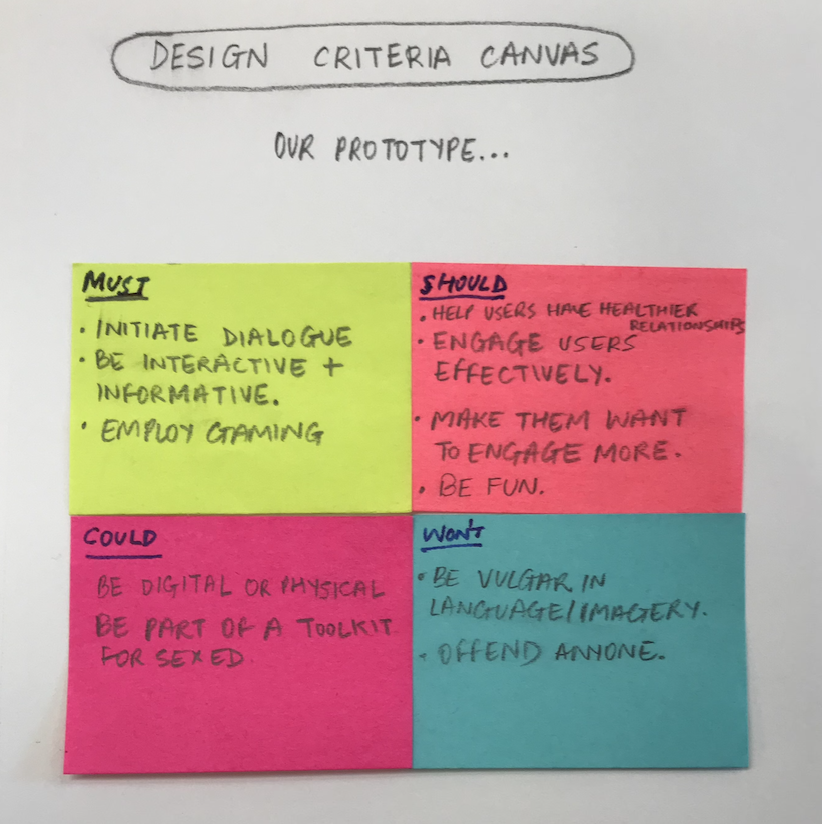 DESIGN CRITERIA CANVAS
OUR PROTOTYPE...
MUST
• INITIATE DIALOGUE
• BE INTERACTIVE +
INFORMATIVE.
• EMPLOY GAMING
SHOULD
• HELP USERS HAVE HEALTHIER
RELATIONSHIPS
• ENGAGE USERS
EFFECTIVELY.
• MAKE THEM WANT
TO ENGAGE MORE.
• BE FUN.
COULD
BE DIGITAL OR PHYSICAL
BE PART OF A TOOLKIT
FOR SEXED.
WON'T
• BE VULGAR IN
LANGUAGE/IMAGERY.
• OFFEND ANYONE.